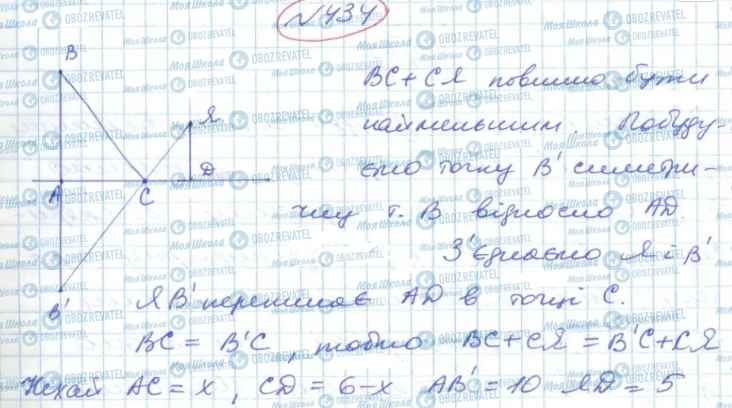 №434
B
Я
A
C
D
B'
BC + CЯ повинно бути
найменьшим. Побуду-
ємо точку B' симетри-
чну т. B відносно AD.
З'єднаємо Я і B'
ЯB' перетинає AD в точці C.
BC = B'C, тобто BC + CЯ = B'C + CЯ
Нехай AC = x, CD = 6-x AB' = 10 ЯD = 5